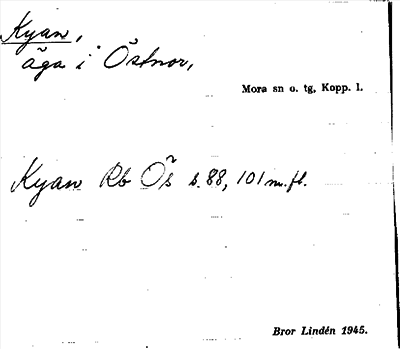 Kyan,
äga i Östnor,
Mora sn o. tg, Kopp. l.
Kyan Rb Ös s. 88, 101 m. fl.
Bror Lindén 1945.